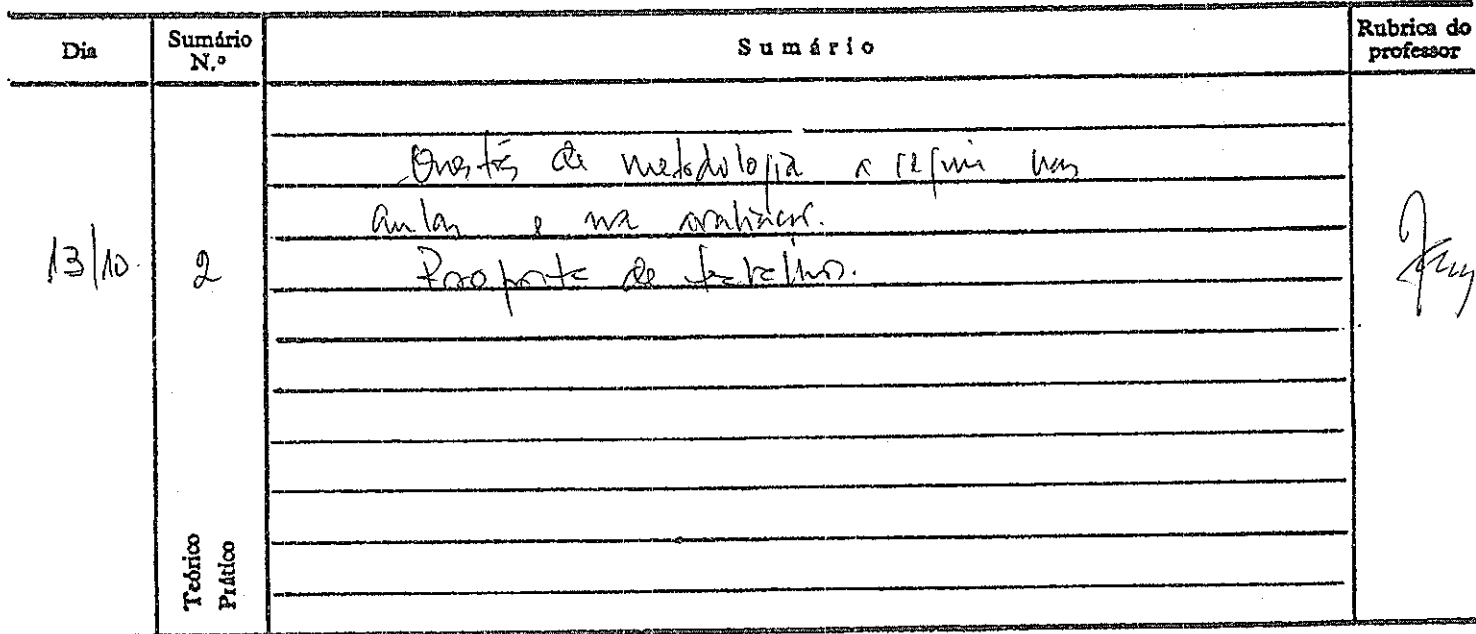 Dia
Sumário N.º
Sumário
Rubrica do professor
Questões de metodologia a seguir nas
aulas e na avaliação.
13/10.
2
Proposta de trabalhos.
Teórico
Prático